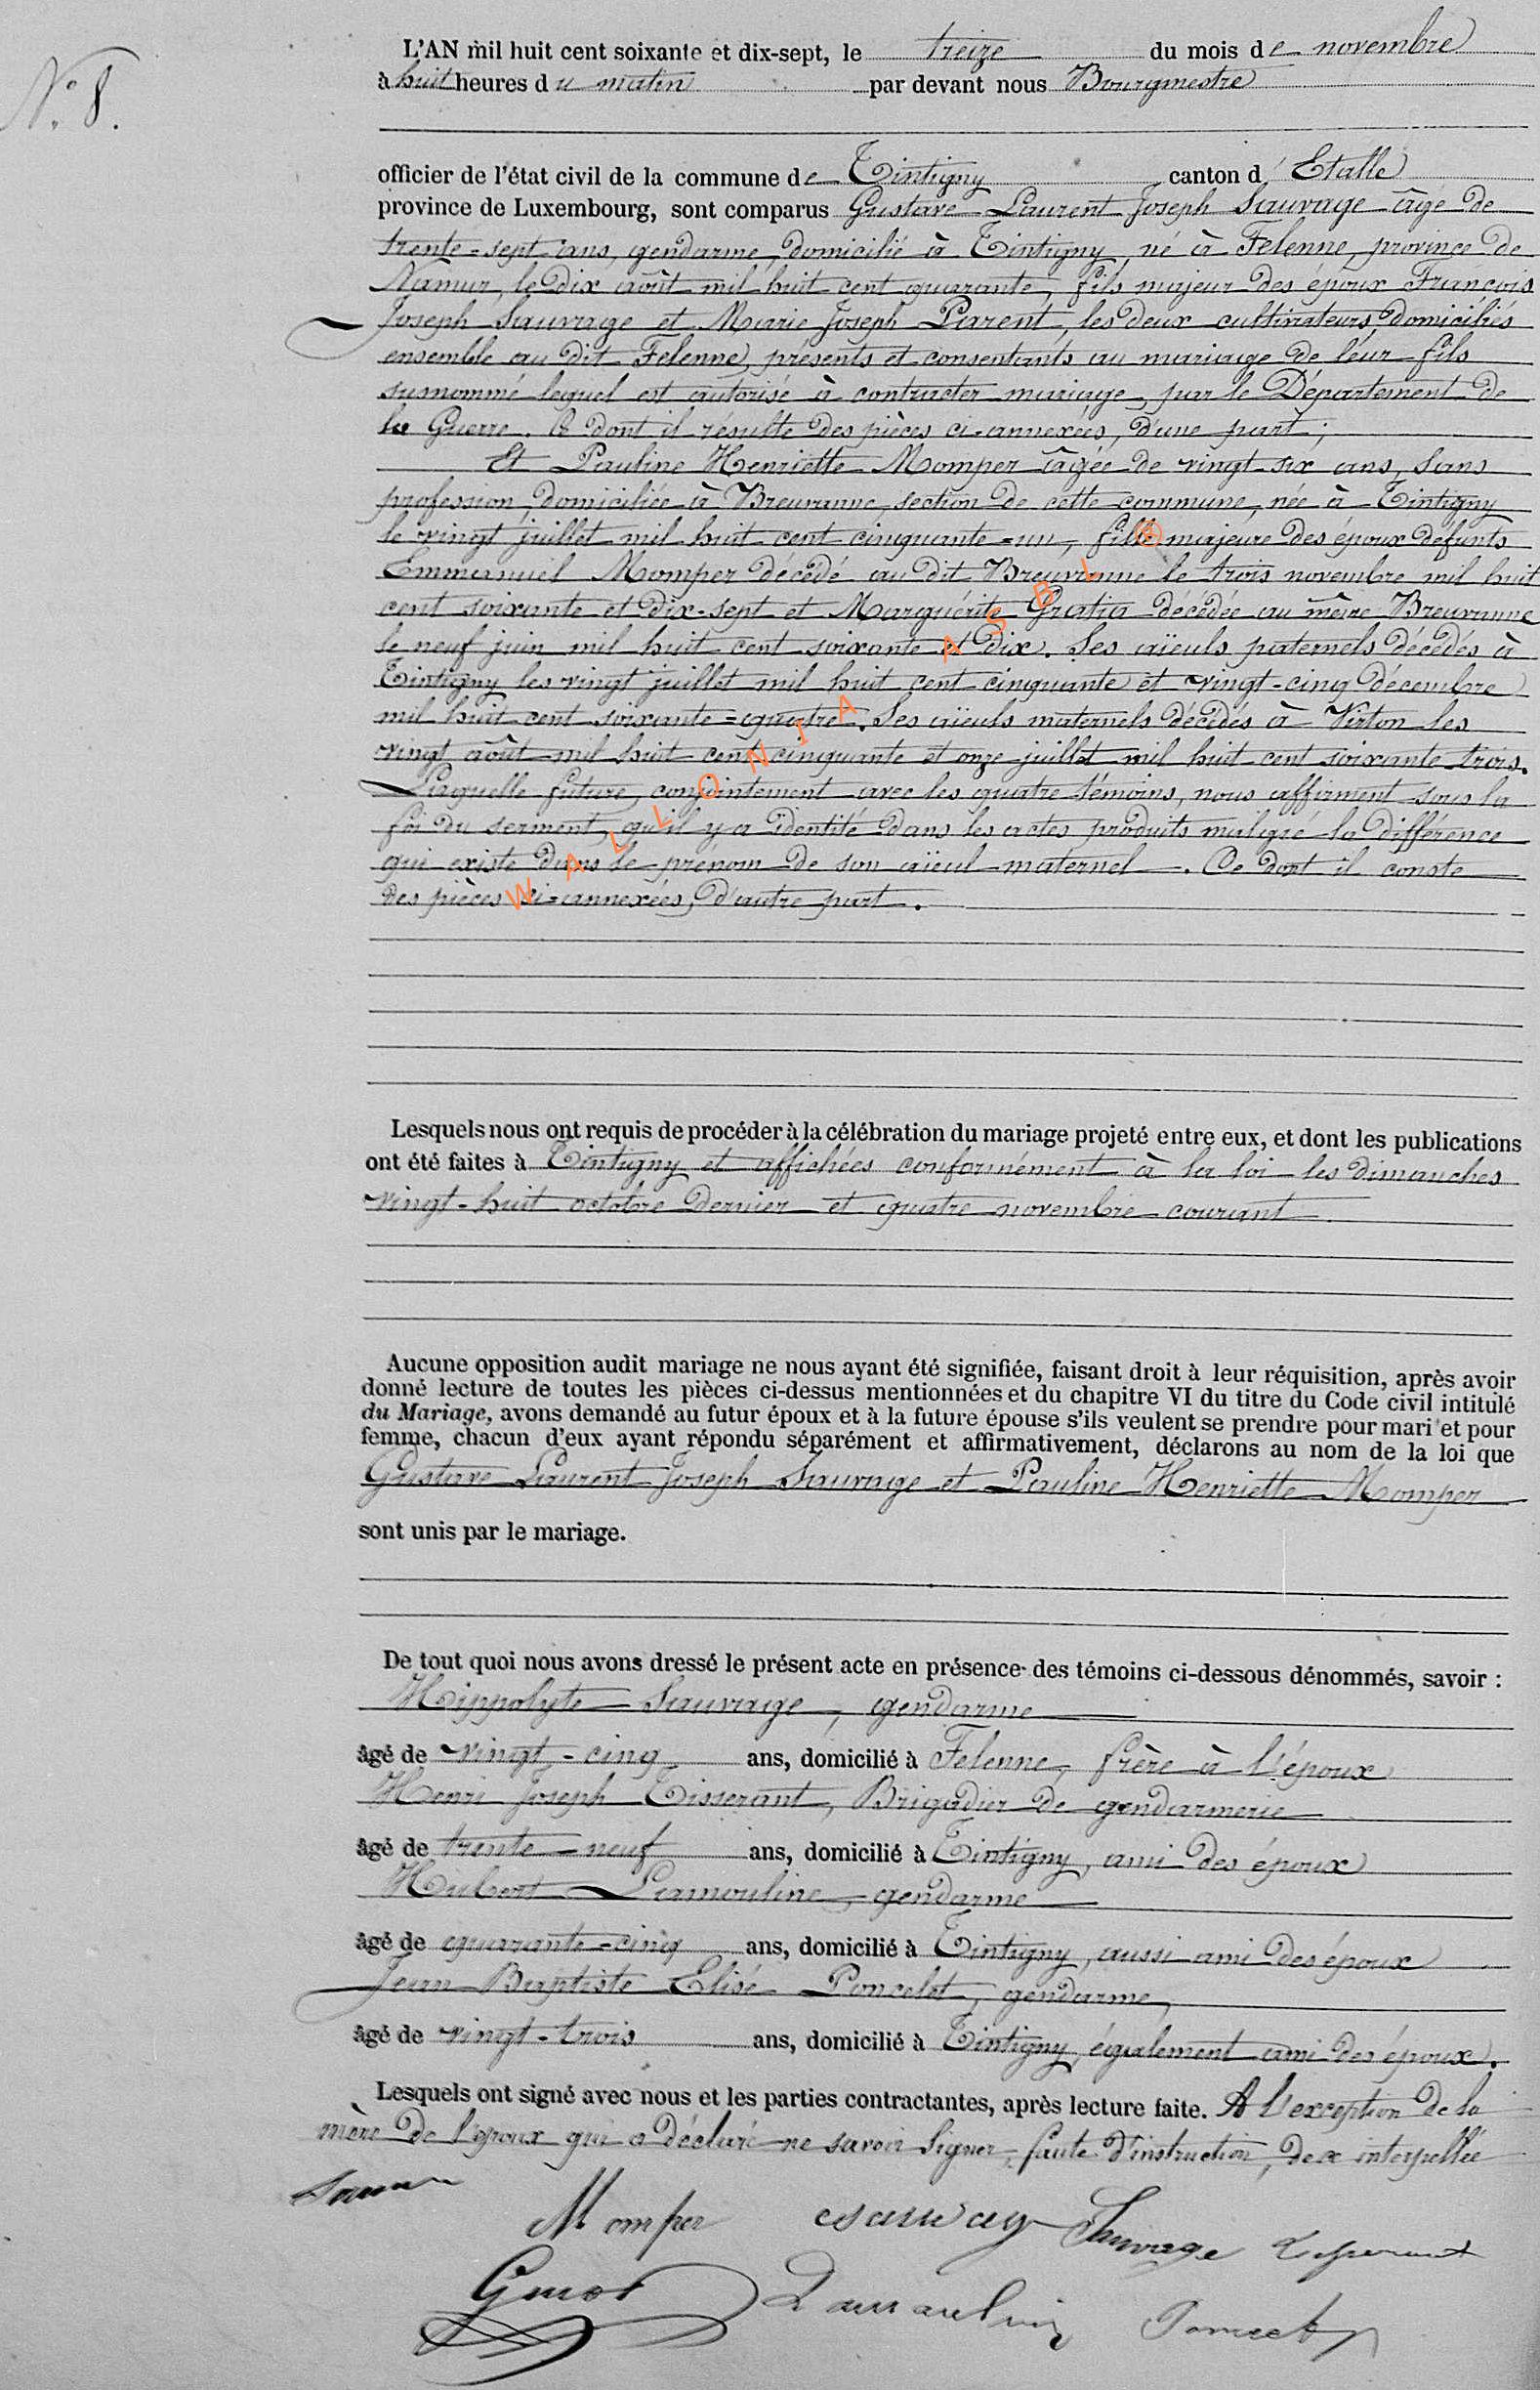 N° 8.
L'AN mil huit cent soixante et dix-sept, le treize du mois de novembre
à huit heures du matin par devant nous Bourgmestre
officier de l'état civil de la commune de Tintigny canton d'Etalle
province de Luxembourg, sont comparus Gustave Laurent Joseph Sauvage âgé de
trente-sept ans, gendarme, domicilié à Tintigny, né à Felenne, province de
Namur, le dix août mil huit cent quarante, fils majeur des époux François
Joseph Sauvage et Marie Joseph Parent, les deux cultivateurs, domiciliés
ensemble au dit Felenne, présents et consentants au mariage de leur fils
susnommé lequel est autorisé à contracter mariage, par le Département de
la Guerre. Ce dont il résulte des pièces ci-annexées, d'une part;
Et Pauline Henriette Momper âgée de vingt-six ans, sans
profession, domiciliée à Breuvanne, section de cette commune, née à Tintigny
le vingt juillet mil huit cent cinquante-un, fille majeure des époux défunts
Emmanuel Momper décédé au dit Breuvanne le trois novembre mil huit
cent soixante et dix-sept et Marguérite Gratia décédée au même Breuvanne
le neuf juin mil huit cent soixante et dix. Ses aïeuls paternels décédés à
Tintigny les vingt juillet mil huit cent cinquante et vingt-cinq décembre
mil huit cent soixante-quatre. Ses aïeuls maternels décédés à Virton les
vingt août mil huit cent cinquante et onze juillet mil huit cent soixante trois.
Laquelle future, conjointement avec les quatre témoins, nous affirment sous la
foi du serment, qu'il y a identité dans les actes produits malgré la différence
qui existe dans le prénom de son aïeul maternel. Ce dont il conste
des pièces ci-annexées, d'autre part.
WALLONIA ASBL ®
Lesquels nous ont requis de procéder à la célébration du mariage projeté entre eux, et dont les publications
ont été faites à Tintigny et affichées conformément à la loi les dimanches
vingt-huit octobre dernier et quatre novembre courant
Aucune opposition audit mariage ne nous ayant été signifiée, faisant droit à leur réquisition, après avoir
donné lecture de toutes les pièces ci-dessus mentionnées et du chapitre VI du titre du Code civil intitulé
du Mariage, avons demandé au futur époux et à la future épouse s'ils veulent se prendre pour mari et pour
femme, chacun d'eux ayant répondu séparément et affirmativement, déclarons au nom de la loi que
Gustave Laurent Joseph Sauvage et Pauline Henriette Momper
sont unis par le mariage.
De tout quoi nous avons dressé le présent acte en présence des témoins ci-dessous dénommés, savoir :
Hippolyte Sauvage, gendarme
âgé de vingt-cinq ans, domicilié à Felenne, frère à l'époux
Henri Joseph Tisserant, Brigadier de gendarmerie
âgé de trente-neuf ans, domicilié à Tintigny, ami des époux
Hubert Lamouline, gendarme
âgé de quarante-cinq ans, domicilié à Tintigny, aussi ami des époux
Jean Baptiste Elisé Poncelet, gendarme,
âgé de vingt-trois ans, domicilié à Tintigny, également ami des époux.
Lesquels ont signé avec nous et les parties contractantes, après lecture faite. A l'exception de la
mère de l'époux qui a déclaré ne savoir signer, faute d'instruction, de ce interpellée
Momper Sauvage Sauvage Tisserant
Lamouline Poncelet